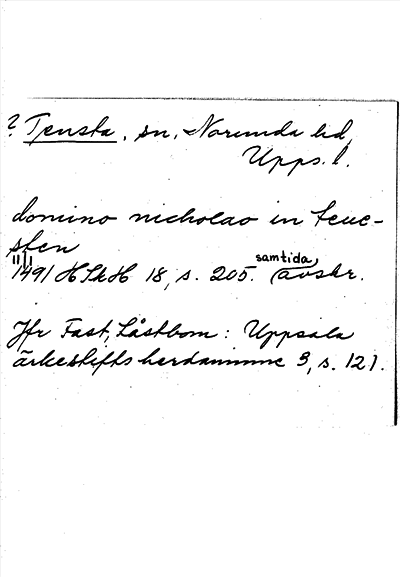 ? Tensta, sn, Norunda hd,
Upps. l.
domino nicholao in teuc-
sten
11/1
1491 HSkH 18, s. 205. samtida avskr.
Jfr Fast, Låstbom: Uppsala
ärkestifts herdaminne 3, s. 121.